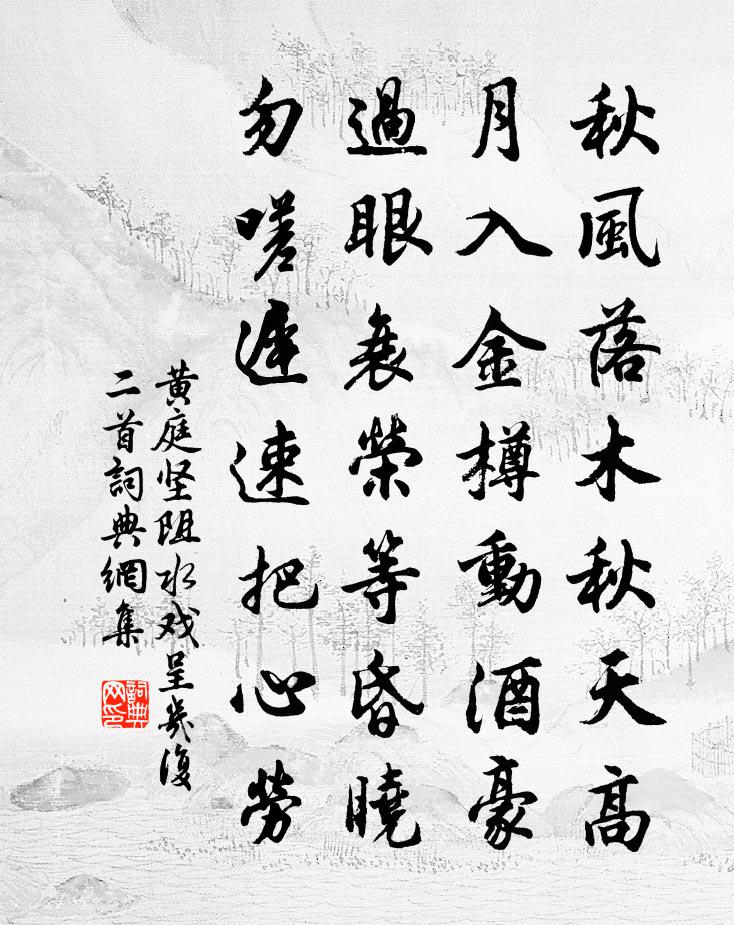 秋風落木秋天高
月入金樽動酒豪
過眼衰榮等昏曉
勿嗟遲速把心勞
黄庭坚阻水戏呈幾復
二首詞典網集
詞典
网印